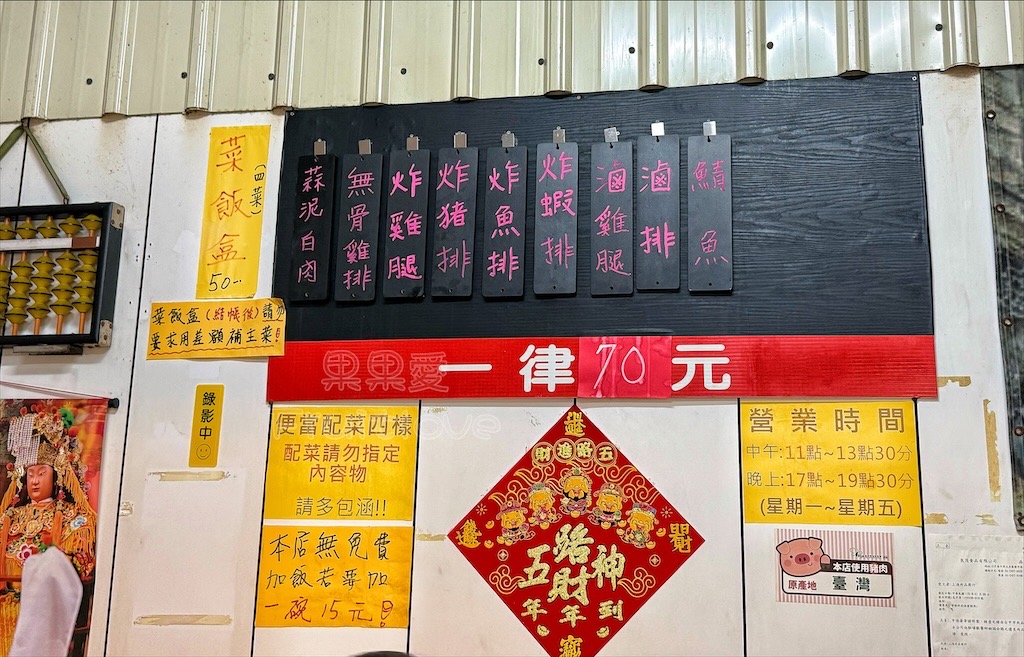 菜飯盒
(四菜)
50..
菜飯盒(結帳後)請勿
要求用差額補主菜!
蒜泥白肉
無骨雞排
炸雞腿
炸豬排
炸魚排
炸蝦排
滷雞腿
滷排
鯖魚
一律70元
果果愛
錄影中
便當配菜四樣
配菜請勿指定
內容物
請多包涵!!
本店無免費
加飯若要加
一碗15元!
五路進財
五路財神到
年年
營業時間
中午:11點~13點30分
晚上:17點~19點30分
(星期一~星期五)
本店使用豬肉
原產地 臺灣